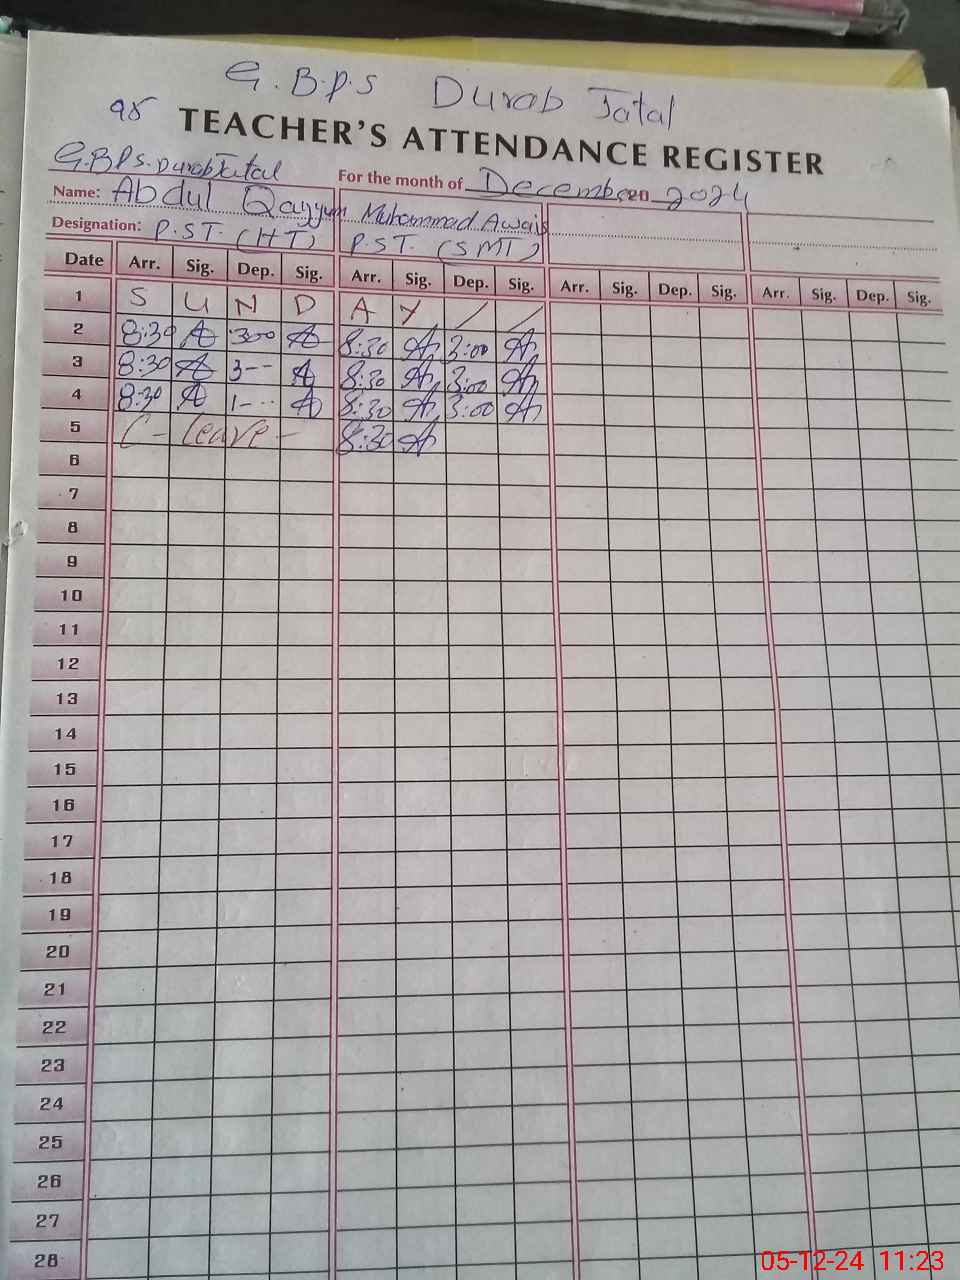 G.B.P.S Durab Jatal
98 TEACHER'S ATTENDANCE REGISTER
G.B.P.S. Durab Jatal For the month of December 20 2024
Name: Abdul Qayyum Muhammad Awais
Designation: P.ST. (HT) P.ST. (SMT)
Date Arr. Sig. Dep. Sig. Arr. Sig. Dep. Sig. Arr. Sig. Dep. Sig. Arr. Sig. Dep. Sig.
1 S U N D A Y / /
2 8:30 3:00 8:30 3:00
3 8:30 3-- 8:30 3:00
4 8:30 1-.. 8:30 3:00
5 C-Leave- 8:30
6
7
8
9
10
11
12
13
14
15
16
17
18
19
20
21
22
23
24
25
26
27
28
05-12-24 11:23